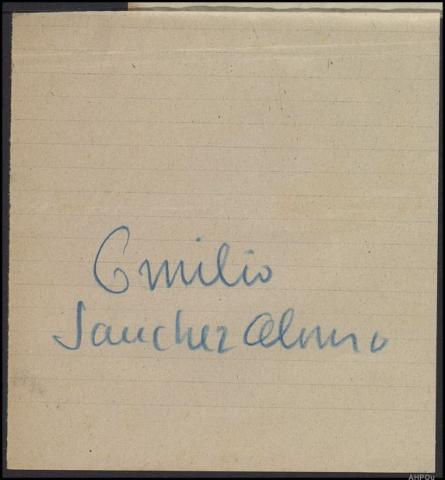 Emilio
Sanchez Alonso
AHPOu